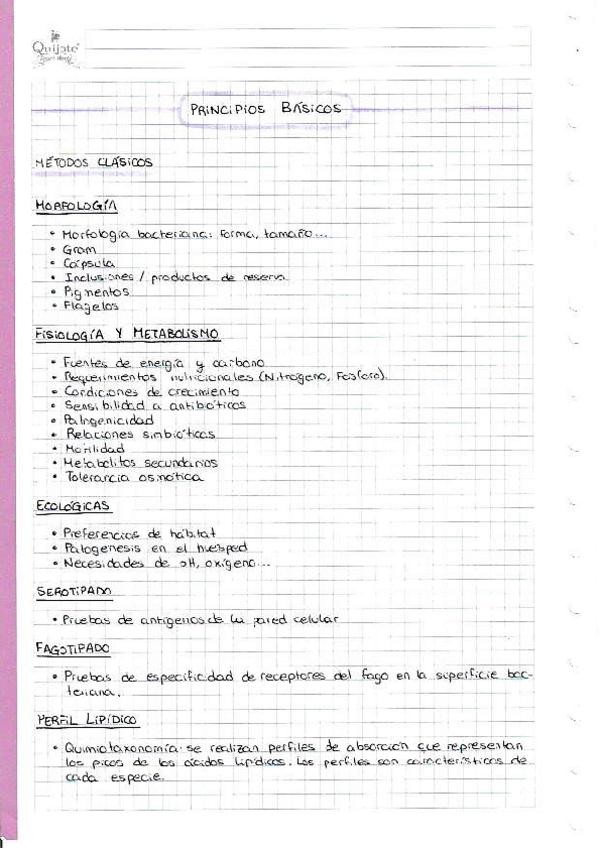 Quijote
PRINCIPIOS BÁSICOS
MÉTODOS CLÁSICOS
MORFOLOGÍA
• Morfología bacteriana: forma, tamaño...
• Gram
• Cápsula
• Inclusiones / productos de reserva
• Pigmentos
• Flagelos
FISIOLOGÍA Y METABOLISMO
• Fuentes de energía y carbono
• Requerimientos nutricionales (Nitrógeno, Fósforo).
• Condiciones de crecimiento
• Sensibilidad a antibióticos
• Patogenicidad
• Relaciones simbióticas
• Motilidad
• Metabolitos secundarios
• Tolerancia osmótica
ECOLÓGICAS
• Preferencias de hábitat
• Patogenesis en el huesped
• Necesidades de pH, oxígeno...
SEROTIPADO
• Pruebas de antígenos de la pared celular
FAGOTIPADO
• Pruebas de especificidad de receptores del fago en la superficie bac-
teriana.
PERFIL LIPÍDICO
• Quimiotaxonomía: se realizan perfiles de absorción que representan
los picos de los ácidos lipídicos. Los perfiles son característicos de
cada especie.